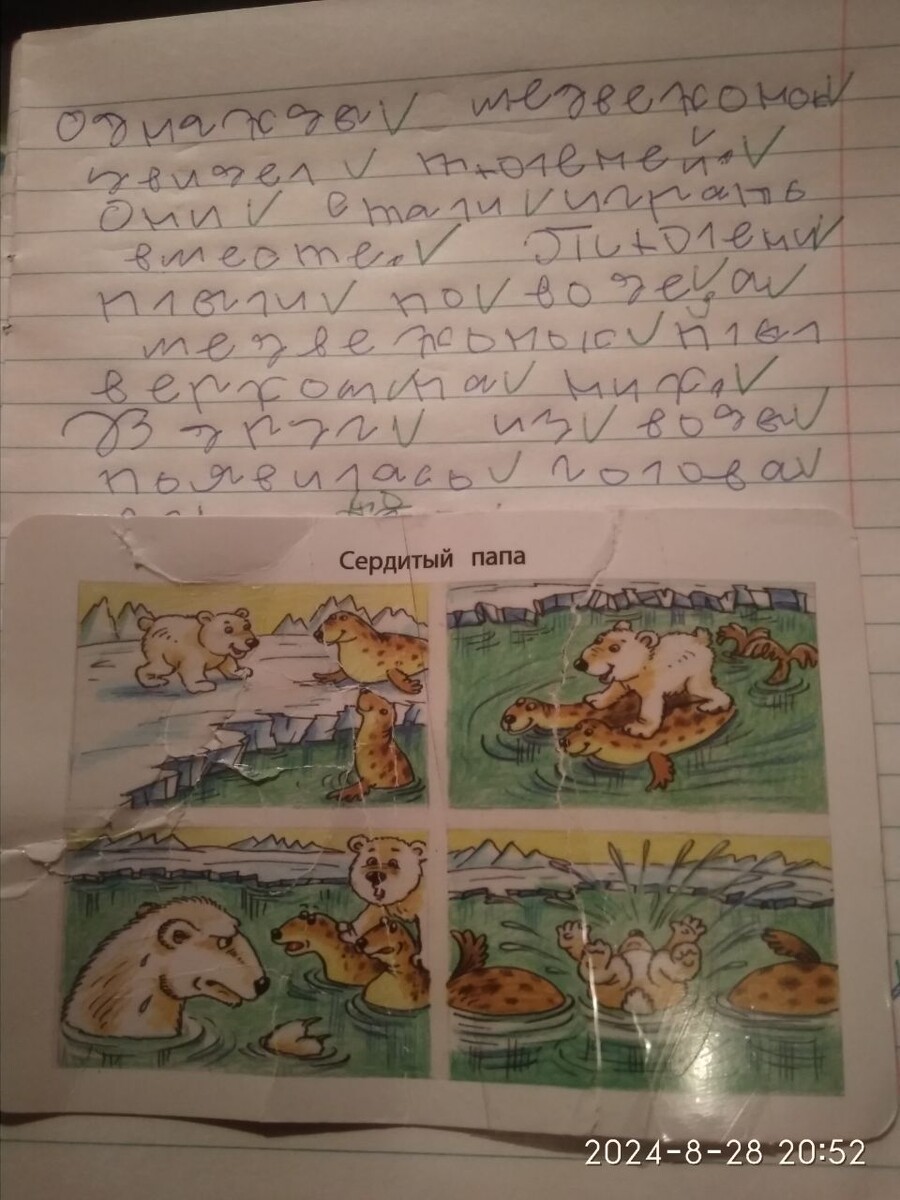 Однажды медвежонок
увидел тюленей.
Они стали играть
вместе. Тюлени
плыли по воде, а
медвежонок плыл
верхом на них.
Вдруг из воды
появилась голова
Сердитый папа
2024-8-28 20:52